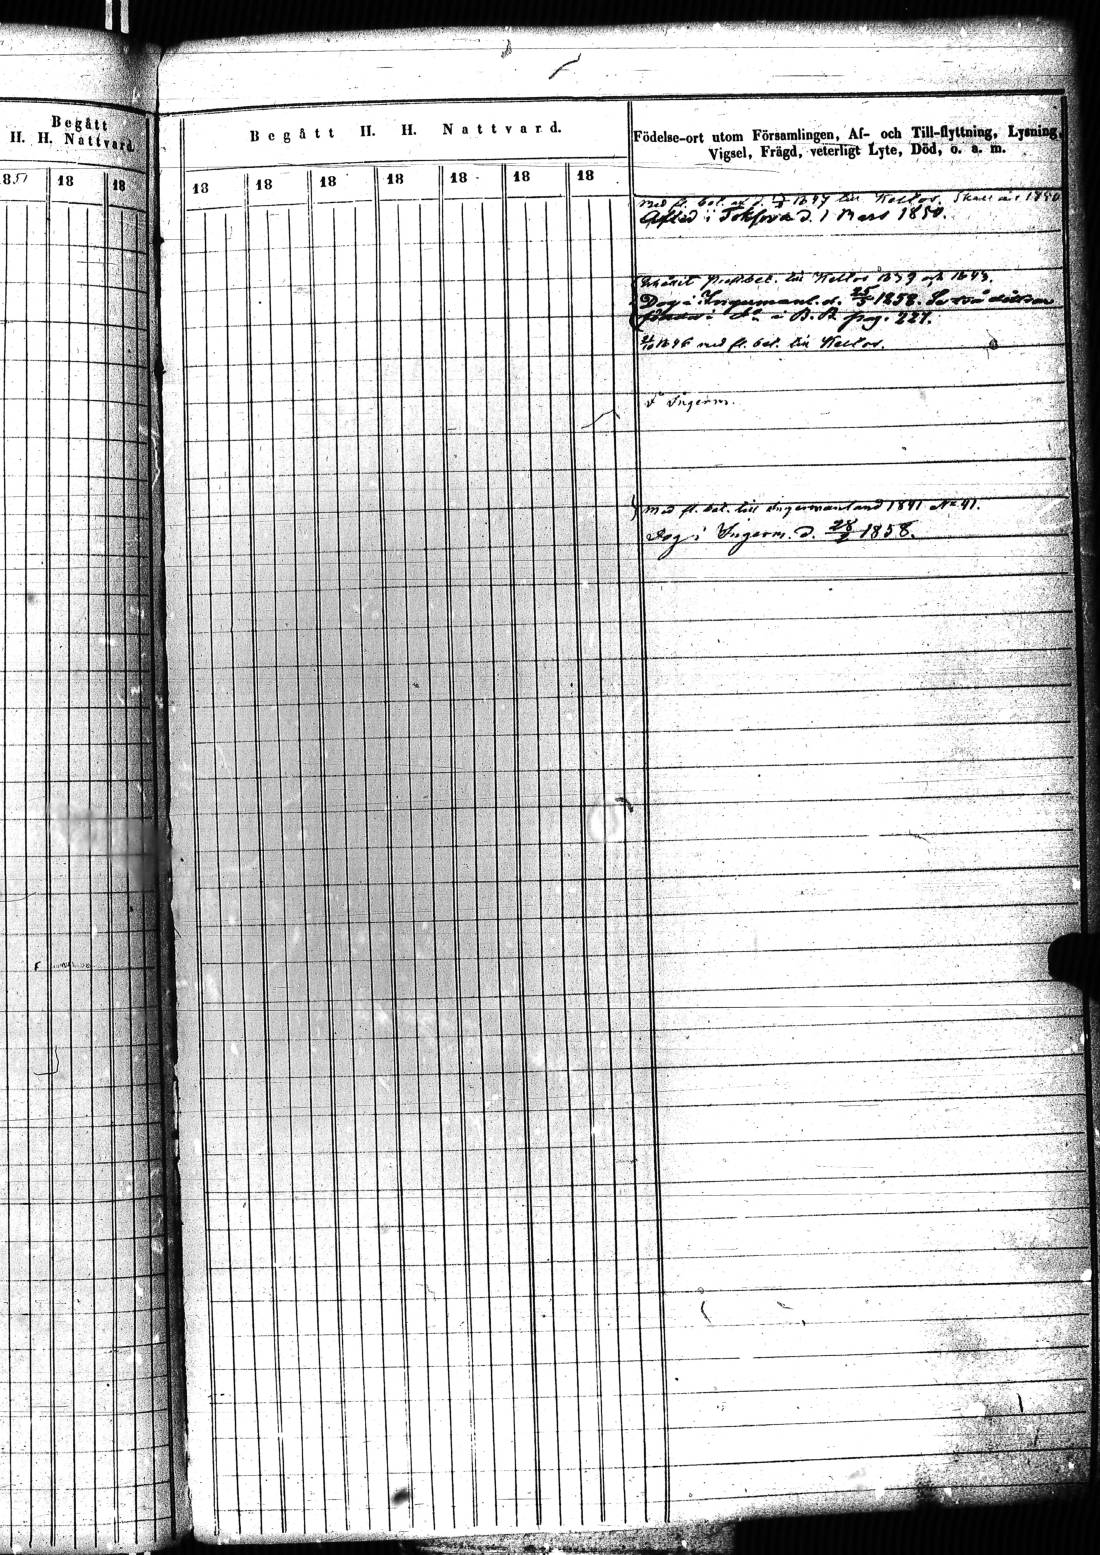 Begått
H. H. Nattvard.
1851 18 18
Begått H. H. Nattvard.
Födelse-ort utom Församlingen, Af- och Till-flyttning, Lysning,
Vigsel, Frägd, veterligt Lyte, Död, o. a. m.
18 18 18 18 18 18 18
Med fl. bet. till Keltos. 1850
Afled i Toksova d. 1 Mars 1850.
Prestbet. till Keltos 1839 och 1843.
Dog i Ingermanl. d. 25/5 1858. Se
i B. R. pag. 221.
1846 med fl. bet. till Keltos.
I Ingerm.
Med fl. bet. till Ingermanland 1841 No 41.
Dog i Ingerm. d. 28/2 1858.